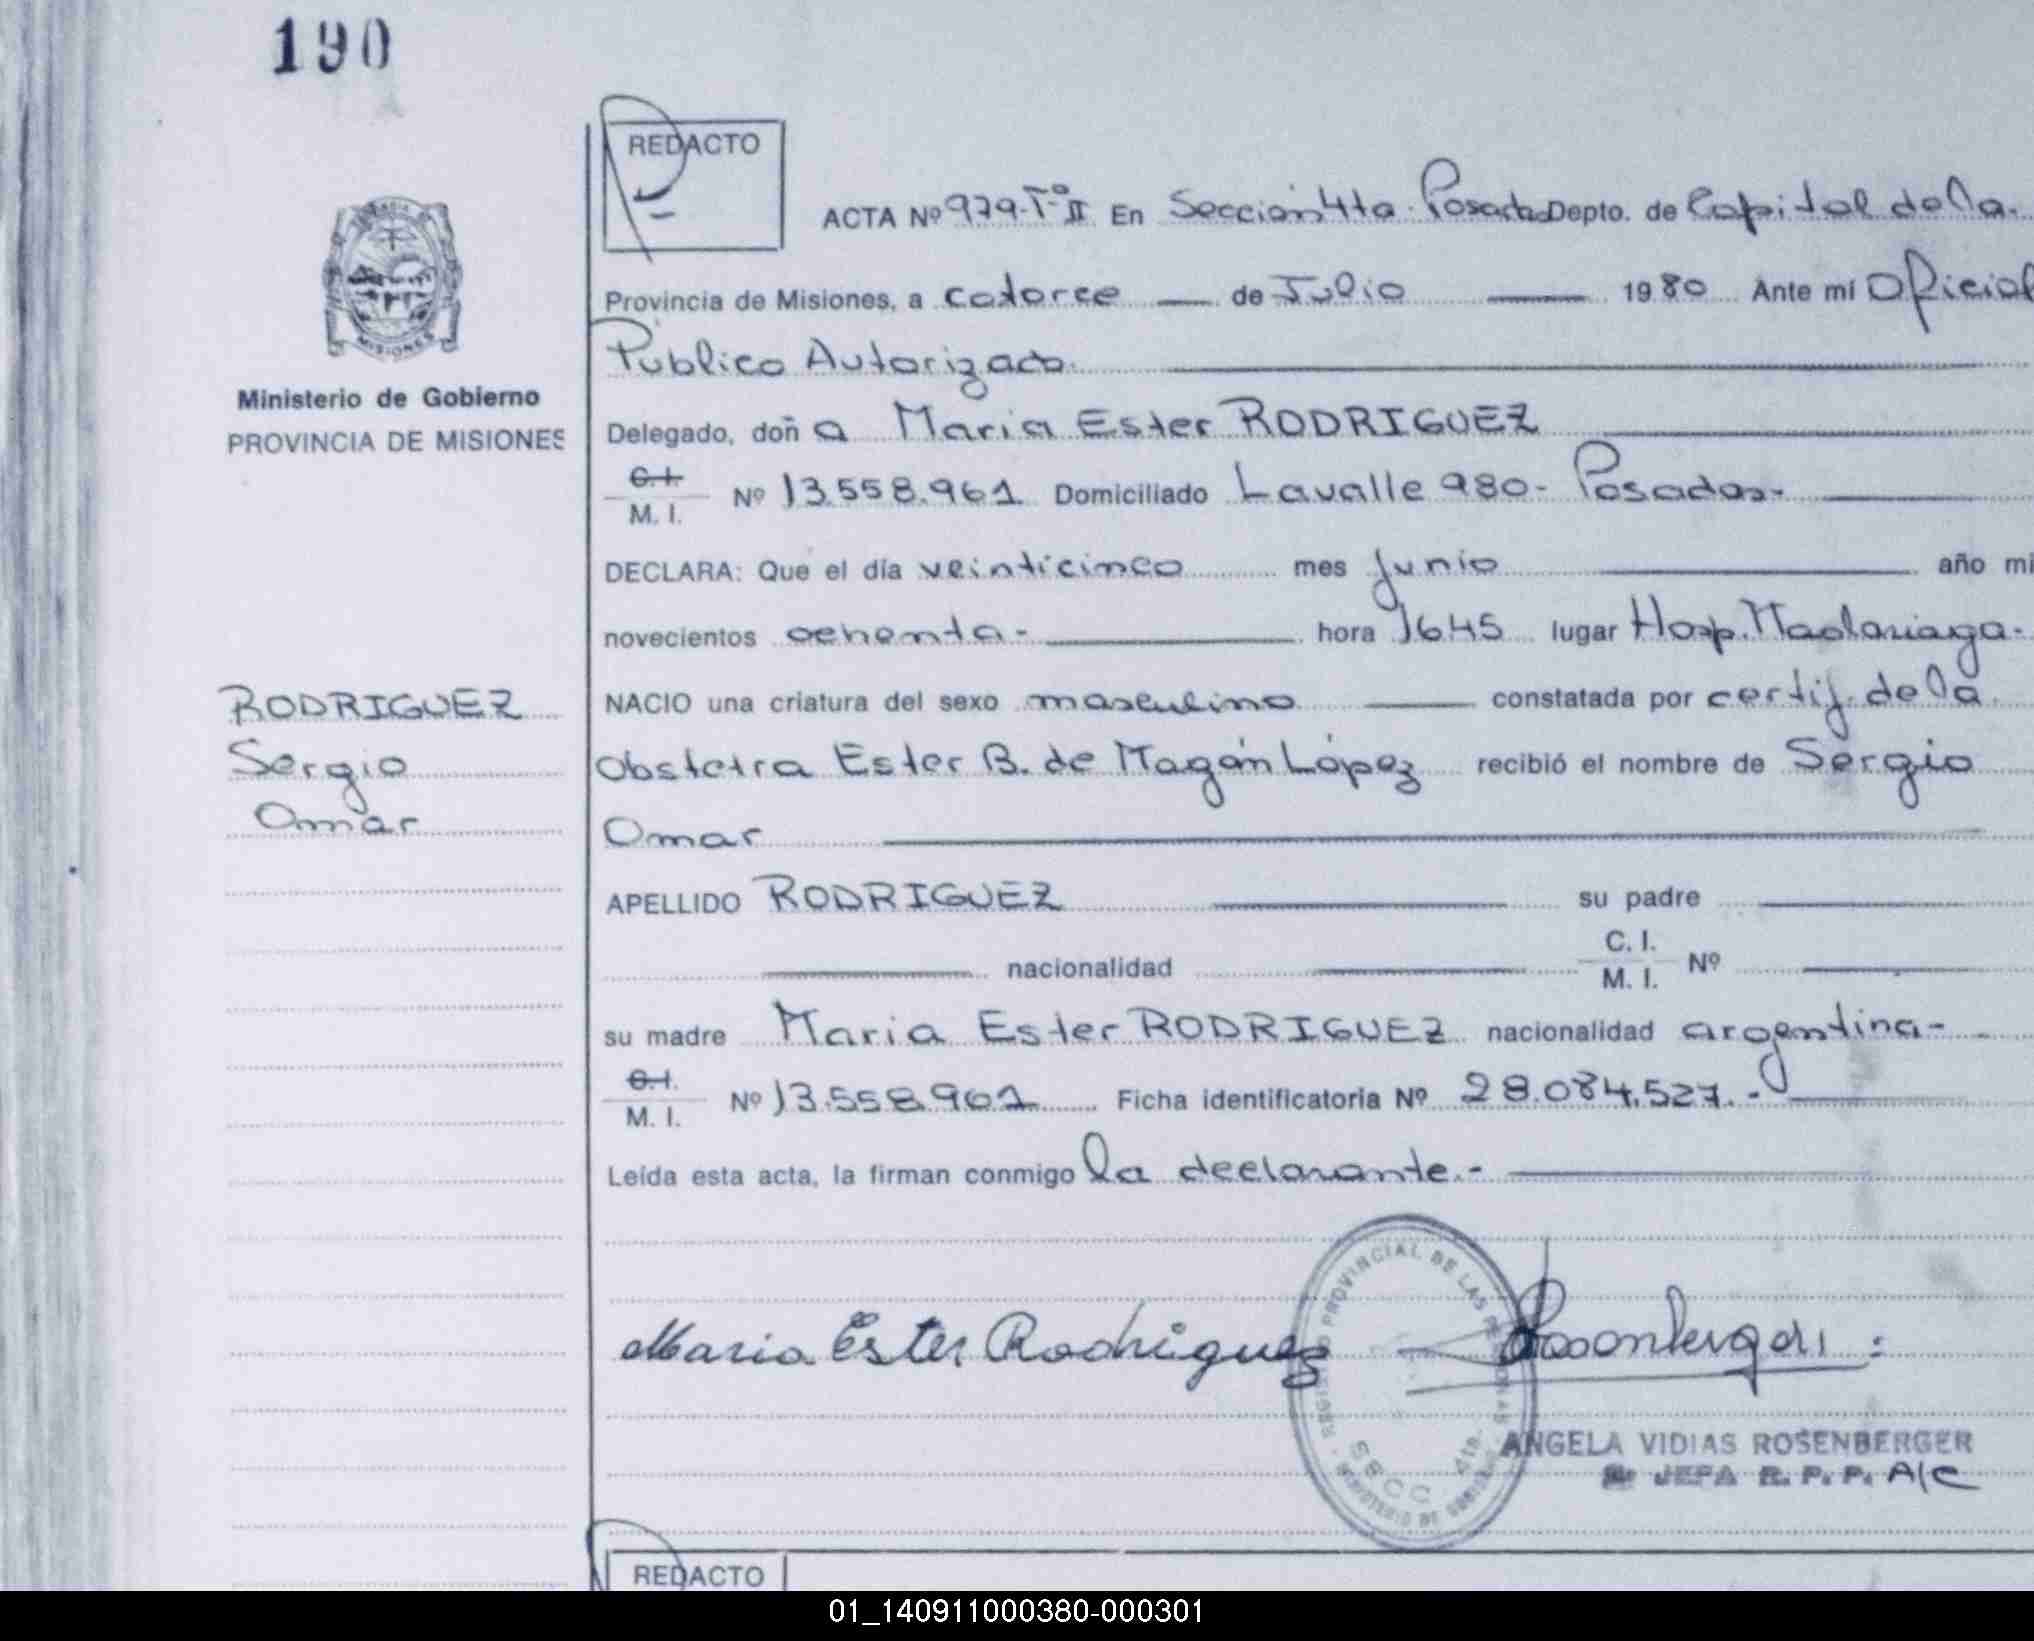 190
REDACTO
ACTA Nº 979-Tº II En Sección 4ta. Posadas Depto. de Capital de la
Provincia de Misiones, a catorce de Julio 1980 Ante mí Oficial
Público Autorizado.
MISIONES
Ministerio de Gobierno
PROVINCIA DE MISIONES
Delegado, doña Maria Ester RODRIGUEZ
C.I.
M. I. Nº 13.558.961 Domiciliado Lavalle 980- Posadas.
DECLARA: Que el día veinticinco mes Junio año mi
novecientos ochenta- hora 1645 lugar Hosp. Madariaga.
RODRIGUEZ
Sergio
Omar
NACIO una criatura del sexo masculino constatada por certif. de la
Obstetra Ester B. de Magán López recibió el nombre de Sergio
Omar
APELLIDO RODRIGUEZ su padre
nacionalidad C. I.
M. I. Nº
su madre Maria Ester RODRIGUEZ nacionalidad argentina-
C.I.
M. I. Nº 13.558.961 Ficha identificatoria Nº 28.084.527.-
Leída esta acta, la firman conmigo la declarante.-
Maria Ester Rodriguez
REGISTRO PROVINCIAL DE LAS PERSONAS
SECC 4ta.
MINISTERIO DE GOBIERNO
ANGELA VIDIAS ROSENBERGER
JEFA R. P. P. A/C
REDACTO
01_140911000380-000301